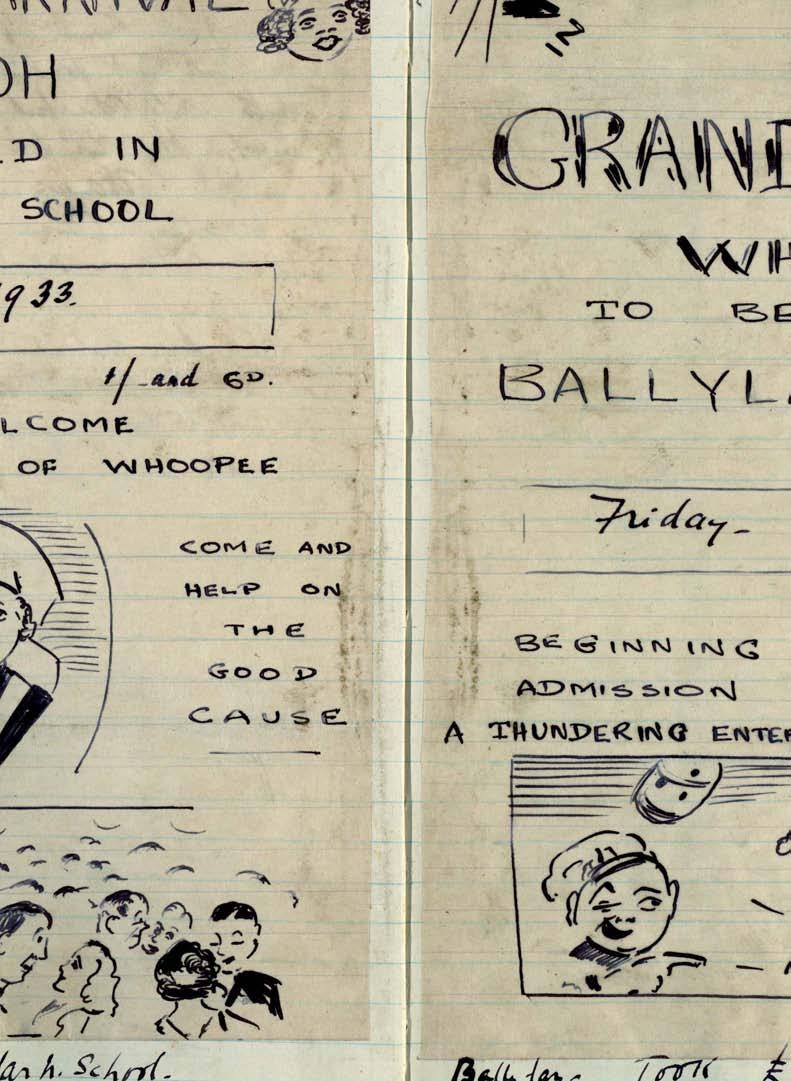 OH
D IN
SCHOOL
1933.
1/- and 6D.
LCOME
OF WHOOPEE
COME AND
HELP ON
THE
GOOD
CAUSE
h. School.
GRAND
WH
TO BE
BALLYLA
Friday-
BEGINNING
ADMISSION
A THUNDERING ENTER
Took £